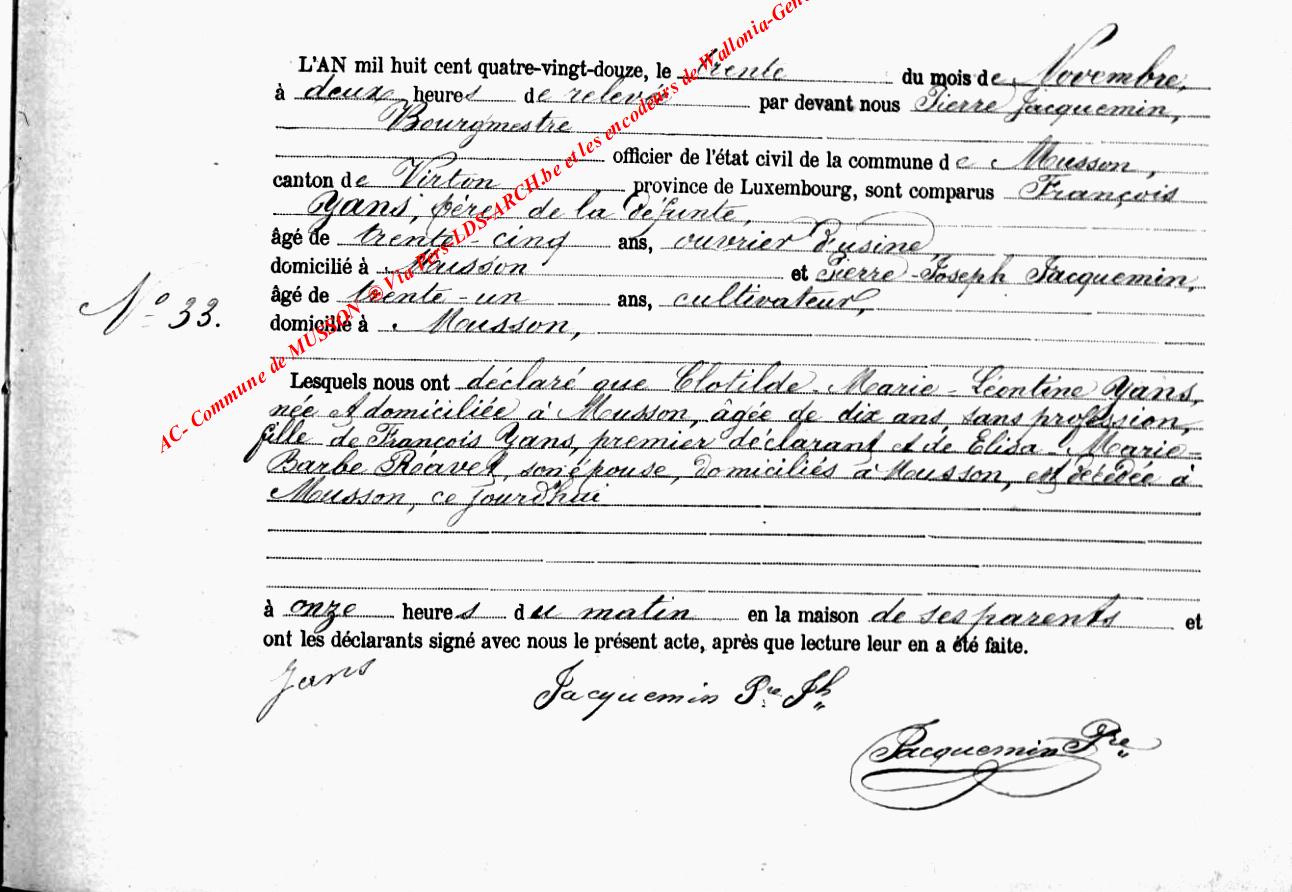 L'AN mil huit cent quatre-vingt-douze, le trente du mois de Novembre,
à deux heures de relevée par devant nous Pierre Jacquemin,
Bourgmestre
officier de l'état civil de la commune de Musson,
canton de Virton province de Luxembourg, sont comparus François
Yans, père de la défunte,
âgé de trente-cinq ans, ouvrier d'usine,
domicilié à Musson et Pierre-Joseph Jacquemin,
âgé de trente-un ans, cultivateur,
N° 33.
domicilié à Musson,
Lesquels nous ont déclaré que Clotilde-Marie-Léontine Yans,
née et domiciliée à Musson, âgée de dix ans, sans profession,
fille de François Yans, premier déclarant et de Elisa-Marie-
Barbe Réavet, son épouse, domiciliés à Musson, est décédée à
Musson, ce jourd'hui
à onze heures du matin en la maison de ses parents et
ont les déclarants signé avec nous le présent acte, après que lecture leur en a été faite.
Jans
Jacquemin Pre Jh
Jacquemin Pre
AC- Commune de MUSSON ® Via Pers-LDS-ARCH.be et les encodeurs de Wallonia-Gen